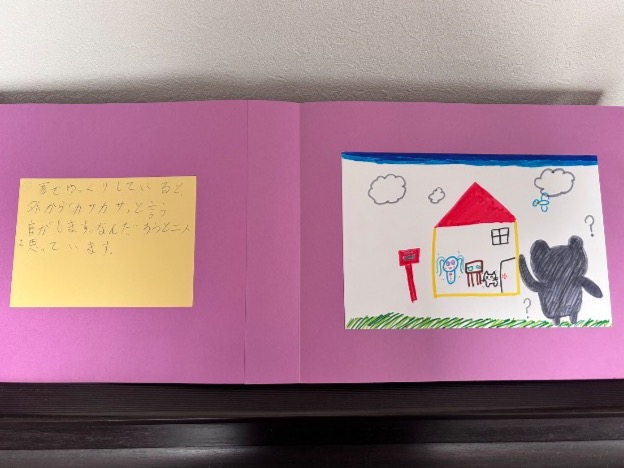 家でゆっくりしていると
外から「カサカサ」と言う
音がします。なんだろうと二人
は思っています。
?
?